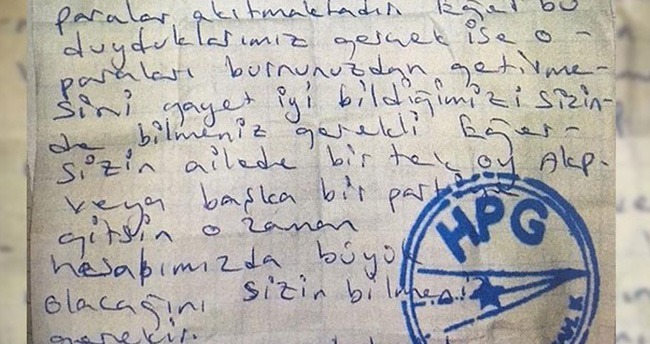 paralar akıtmaktadır Eğer bu
duyduklarımız gerçek ise o -
paraları burnunuzdan getirme-
sini gayet iyi bildiğimizi sizin-
de bilmeniz gerekli Eğer-
sizin ailede bir tek oy Akp-
veya başka bir
gitsin o zaman
hesabımızda büyük
olacağını sizin bilmeniz
gerekir.
HPG